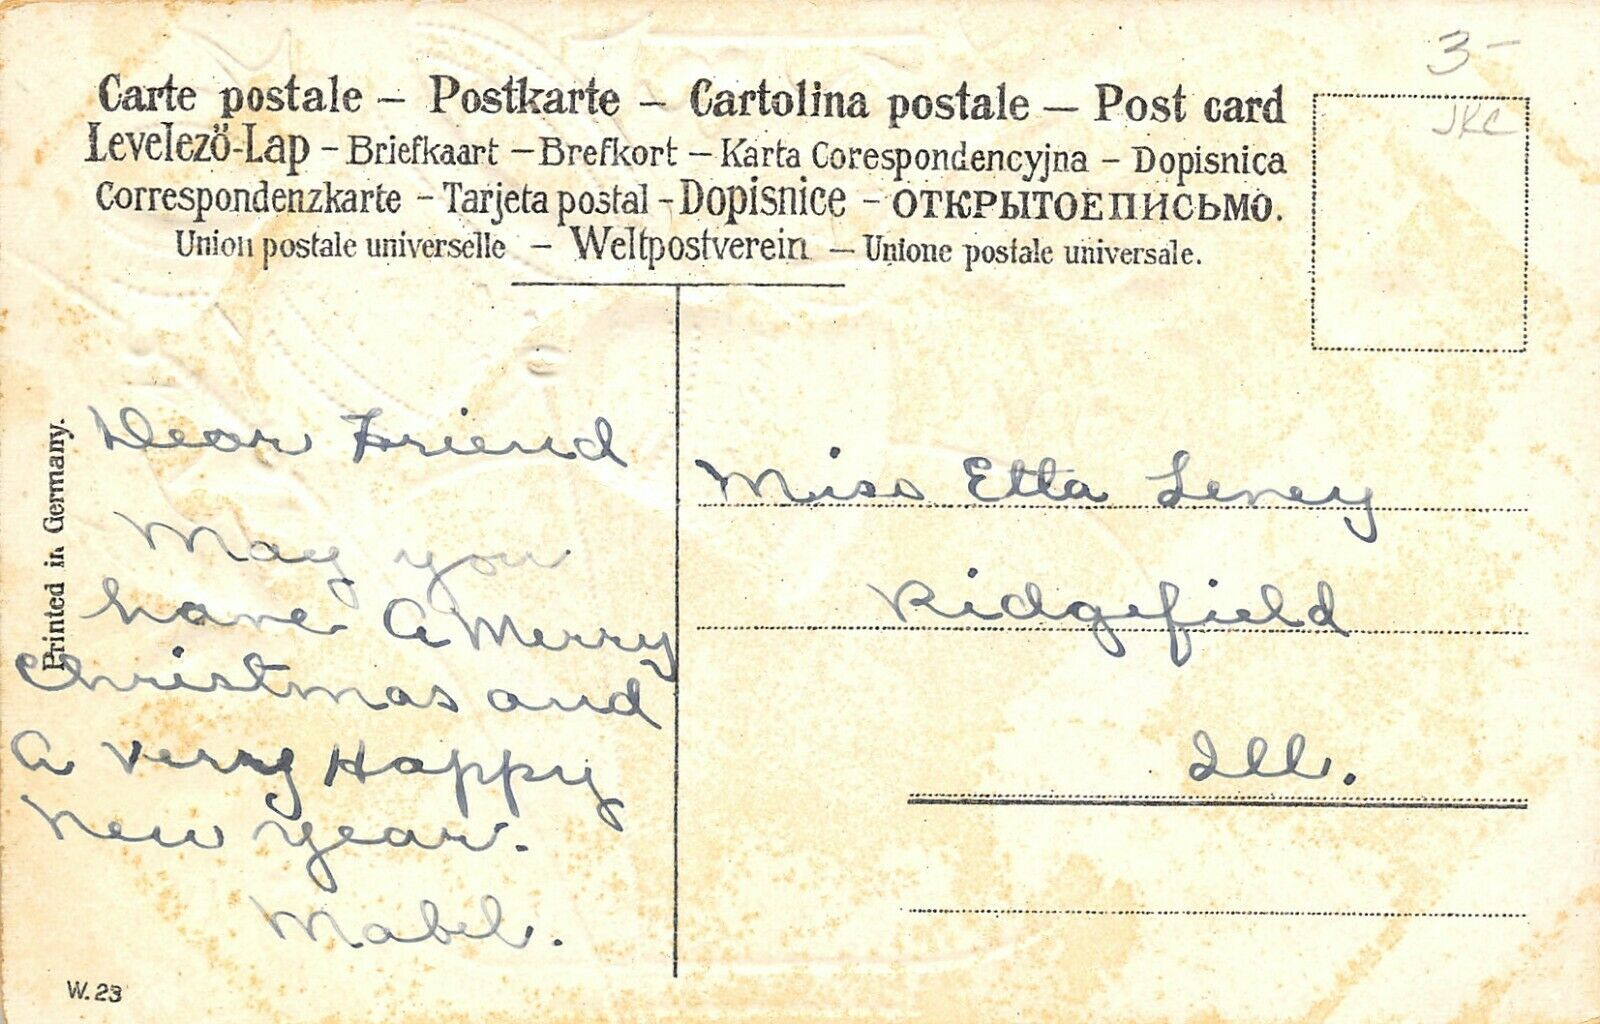 3-
JKC
Carte postale – Postkarte – Cartolina postale – Post card
Levelező-Lap – Briefkaart – Brefkort – Karta Corespondencyjna – Dopisnica
Correspondenzkarte – Tarjeta postal – Dopisnice – ОТКРЫТОЕПИСЬМО.
Union postale universelle – Weltpostverein – Unione postale universale.
Printed in Germany.
Dear Friend
May you
have A Merry
Christmas and
A very Happy
New year.
Mabel.
Miss Etta Leney
Ridgefield
Ill.
W.23